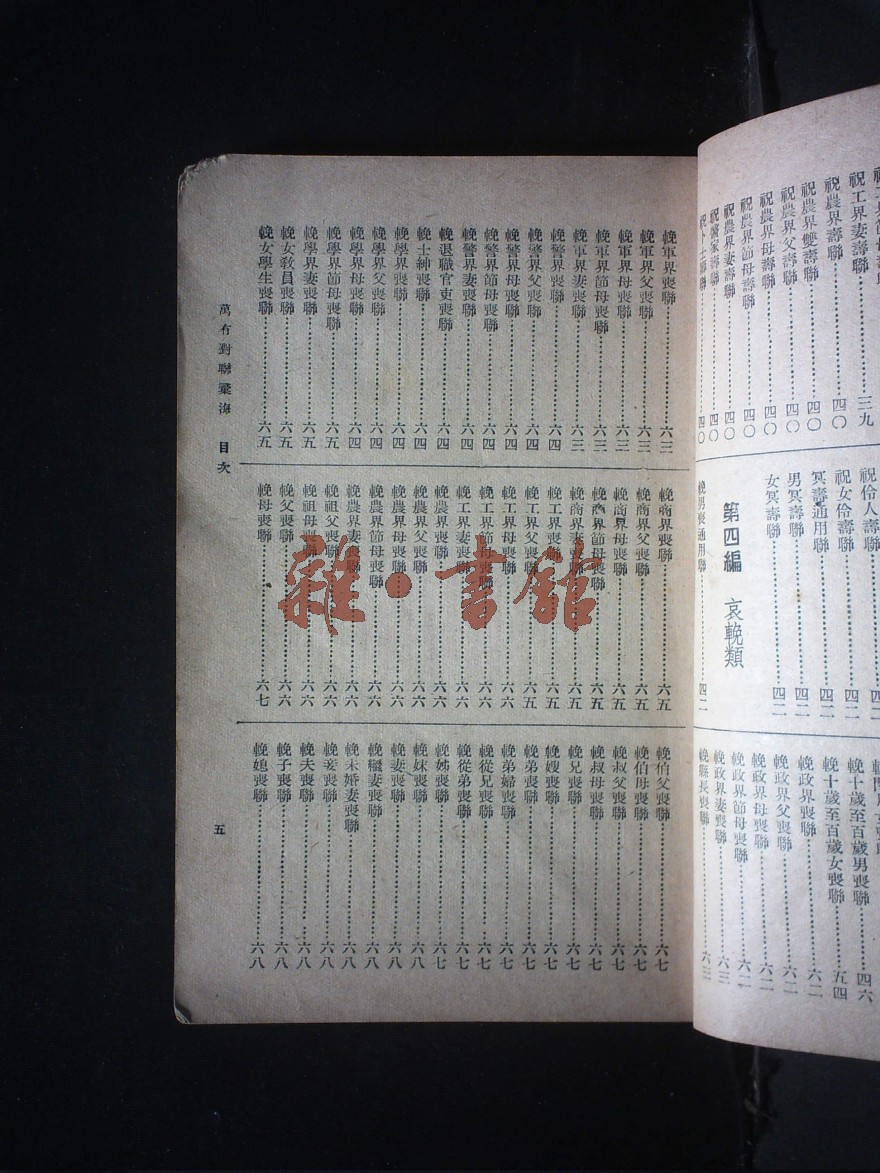 祝工界妻壽聯……三九
祝農界壽聯……四〇
祝農界雙壽聯……四〇
祝農界父壽聯……四〇
祝農界母壽聯……四〇
祝農界節母壽聯……四〇
祝農界妻壽聯……四〇
祝醫家壽聯……四〇
祝卜士壽聯……四〇
祝伶人壽聯……四二
祝女伶壽聯……四二
冥壽通用聯……四二
男冥壽聯……四二
女冥壽聯……四二
第四編 哀輓類
輓男喪通用聯……四二
輓十歲至百歲男喪聯……四六
輓十歲至百歲女喪聯……五四
輓政界喪聯……六二
輓政界父喪聯……六二
輓政界母喪聯……六二
輓政界節母喪聯……六二
輓政界妻喪聯……六二
輓縣長喪聯……六三
輓軍界喪聯……六三
輓軍界父喪聯……六三
輓軍界母喪聯……六三
輓軍界節母喪聯……六三
輓軍界妻喪聯……六三
輓警界喪聯……六四
輓警界父喪聯……六四
輓警界母喪聯……六四
輓警界節母喪聯……六四
輓警界妻喪聯……六四
輓退職官吏喪聯……六四
輓士紳喪聯……六四
輓學界喪聯……六四
輓學界父喪聯……六四
輓學界母喪聯……六四
輓學界節母喪聯……六五
輓學界妻喪聯……六五
輓女教員喪聯……六五
輓女學生喪聯……六五
輓商界喪聯……六五
輓商界父喪聯……六五
輓商界母喪聯……六五
輓商界節母喪聯……六五
輓商界妻喪聯……六五
輓工界喪聯……六五
輓工界父喪聯……六五
輓工界母喪聯……六六
輓工界節母喪聯……六六
輓工界妻喪聯……六六
輓農界喪聯……六六
輓農界父喪聯……六六
輓農界母喪聯……六六
輓農界節母喪聯……六六
輓農界妻喪聯……六六
輓祖父喪聯……六六
輓祖母喪聯……六六
輓父喪聯……六六
輓母喪聯……六七
輓伯父喪聯……六七
輓伯母喪聯……六七
輓叔父喪聯……六七
輓叔母喪聯……六七
輓兄喪聯……六七
輓嫂喪聯……六七
輓弟喪聯……六七
輓弟婦喪聯……六七
輓從兄喪聯……六七
輓從弟喪聯……六七
輓姊喪聯……六七
輓妹喪聯……六八
輓妻喪聯……六八
輓繼妻喪聯……六八
輓未婚妻喪聯……六八
輓妾喪聯……六八
輓夫喪聯……六八
輓子喪聯……六八
輓媳喪聯……六八
萬有對聯彙海 目次
五
雜·書館